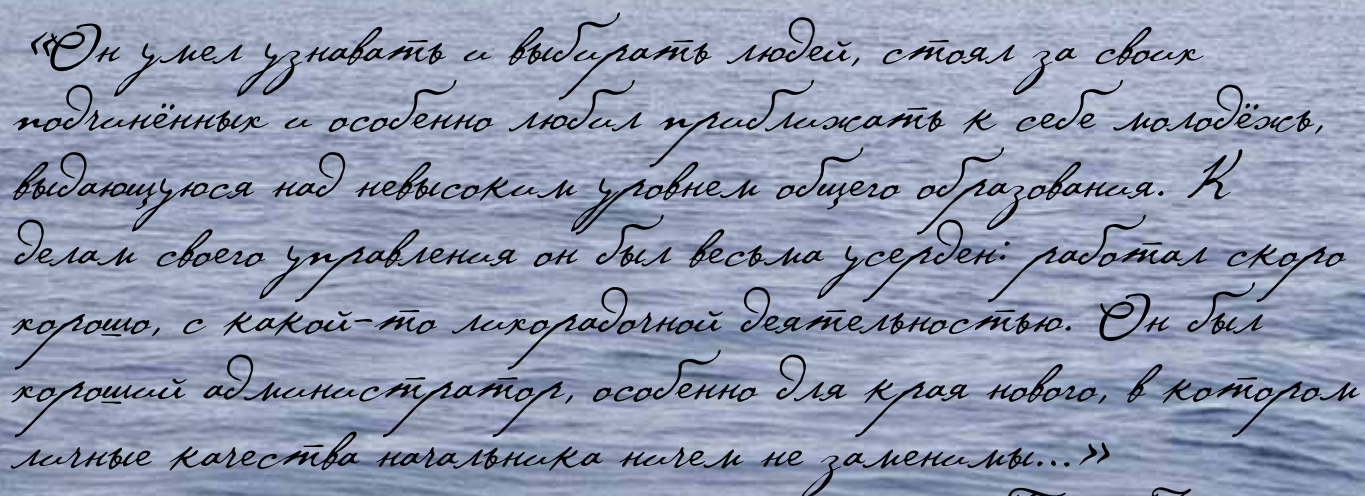 «Он умел узнавать и выбирать людей, стоял за своих
подчинённых и особенно любил приближать к себе молодёжь,
выдающуюся над невысоким уровнем общего образования. К
делам своего управления он был весьма усерден: работал скоро
хорошо, с какой-то лихорадочной деятельностью. Он был
хороший администратор, особенно для края нового, в котором
личные качества начальника ничем не заменимы...»